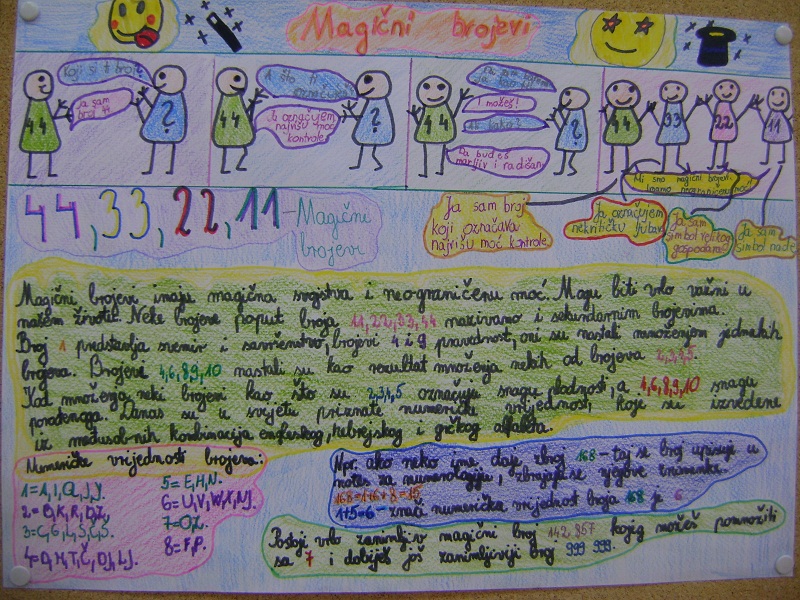 Magični brojevi
Koji si ti broj?
Ja sam
broj 44
44
?
A što ti
označuješ?
Ja označujem
najvišu moć
kontrole
44
?
I možeš!
A kako?
Da budeš
marljiv i radišan
44
?
44
33
22
11
Mi smo magični brojevi
imamo neograničenu moć!
44, 33, 22, 11 - Magični
brojevi
Ja sam broj
koji označava
najvišu moć kontrole
Ja označujem
nekritičku ljubav
Ja sam
simbol velikog
gospodara
Ja sam
simbol nade
Magični brojevi imaju magična svojstva i neograničenu moć. Mogu biti vrlo važni u
našem životu. Neke brojeve poput broja 11, 22, 33, 44 nazivamo i sekundarnim brojevima.
Broj 1 predstavlja svemir i savršenstvo, brojevi 4 i 9 pravednost, oni su nastali množenjem jednakih
brojeva. Brojevi 4,6,8,9,10 nastali su kao rezultat množenja nekih od brojeva 2,3,4,5.
Kod množenja neki brojevi kao što su 2,3,4,5 označuju snagu, a 4,6,8,9,10 snagu
porođenoga. Danas su u svijetu priznate numeričke vrijednosti, koje su izvedene
iz međusobnih kombinacija engleskog, hebrejskog i grčkog alfabeta.
Numeričke vrijednosti brojeva:
1=A, I, Q, J, Y.
2=B, K, R, DŽ,
3=C, G, L, Š, Ć, Š
4=D, M, T, Č, DJ, LJ.
5=E, H, N.
6=U, V, W, X, NJ.
7=O, Z.
8=F, P.
Npr. ako neko ime daje zbroj 168 - taj se broj upisuje u
notes za numerologiju, zbrajaju se njegove znamenke.
168=1+6+8=15
1+5=6 - znači numerička vrijednost broja 168 je 6
Postoji vrlo zanimljiv magični broj 142 857 kojeg možeš pomnožiti
sa 7 i dobiješ još zanimljiviji broj 999 999.